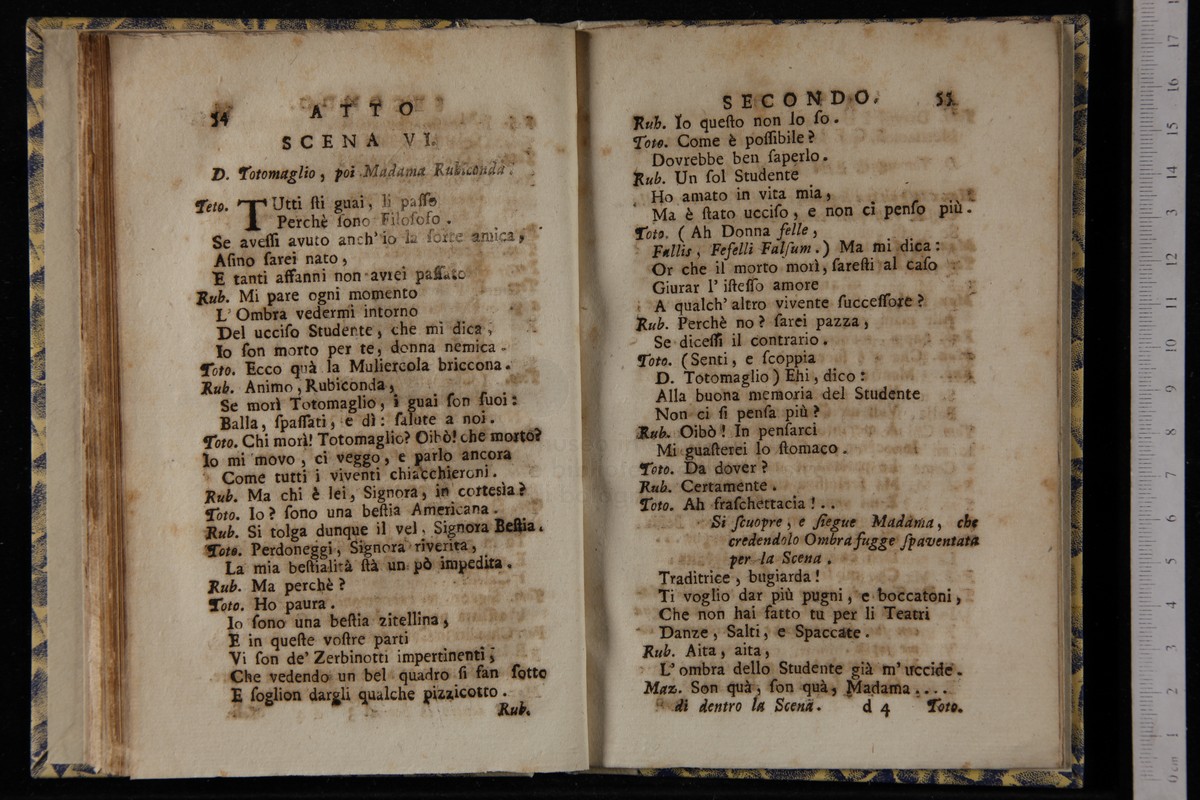 54 ATTO
SCENA VI.
D. Totomaglio, poi Madama Rubiconda.
Toto. TUtti ſti guai, li paſſo
Perchè ſono Filoſofo.
Se aveſſi avuto anch'io la ſorte amica,
Aſino ſarei nato,
E tanti affanni non avrei paſſato
Rub. Mi pare ogni momento
L'Ombra vedermi intorno
Del ucciſo Studente, che mi dica,
Io ſon morto per te, donna nemica.
Toto. Ecco quà la Muliercola briccona.
Rub. Animo, Rubiconda,
Se morì Totomaglio, i guai ſon ſuoi:
Balla, ſpaſſati, e dì: ſalute a noi.
Toto. Chi morì! Totomaglio? Oibò! che morto?
Io mi movo, ci veggo, e parlo ancora
Come tutti i viventi chiacchieroni.
Rub. Ma chi è lei, Signora, in cortesìa?
Toto. Io? ſono una beſtia Americana.
Rub. Si tolga dunque il vel, Signora Beſtia.
Toto. Perdoneggi, Signora riverita,
La mia beſtialità ſtà un pò impedita.
Rub. Ma perchè?
Toto. Ho paura.
Io ſono una beſtia zitellina,
E in queſte voſtre parti
Vi ſon de' Zerbinotti impertinenti,
Che vedendo un bel quadro ſi fan ſotto
E ſoglion dargli qualche pizzicotto.
Rub.
SECONDO. 55
Rub. Io queſto non lo ſo.
Toto. Come è poſſibile?
Dovrebbe ben ſaperlo.
Rub. Un ſol Studente
Ho amato in vita mia,
Ma è ſtato ucciſo, e non ci penſo più.
Toto. (Ah Donna felle,
Fallis, Fefelli Falſum.) Ma mi dica:
Or che il morto morì, ſareſti al caſo
Giurar l'iſteſſo amore
A qualch'altro vivente ſucceſſore?
Rub. Perchè no? ſarei pazza,
Se diceſſi il contrario.
Toto. (Senti, e ſcoppia
D. Totomaglio) Ehi, dico:
Alla buona memoria del Studente
Non ci ſi penſa più?
Rub. Oibò! In penſarci
Mi guaſterei lo ſtomaco.
Toto. Da dover?
Rub. Certamente.
Toto. Ah fraſchettacia!..
Si ſcuopre, e ſiegue Madama, che
credendolo Ombra fugge ſpaventata
per la Scena.
Traditrice, bugiarda!
Ti voglio dar più pugni, e boccatoni,
Che non hai fatto tu per li Teatri
Danze, Salti, e Spaccate.
Rub. Aita, aita,
L'ombra dello Studente già m'uccide.
Maz. Son quà, ſon quà, Madama....
di dentro la Scena. d 4 Toto.